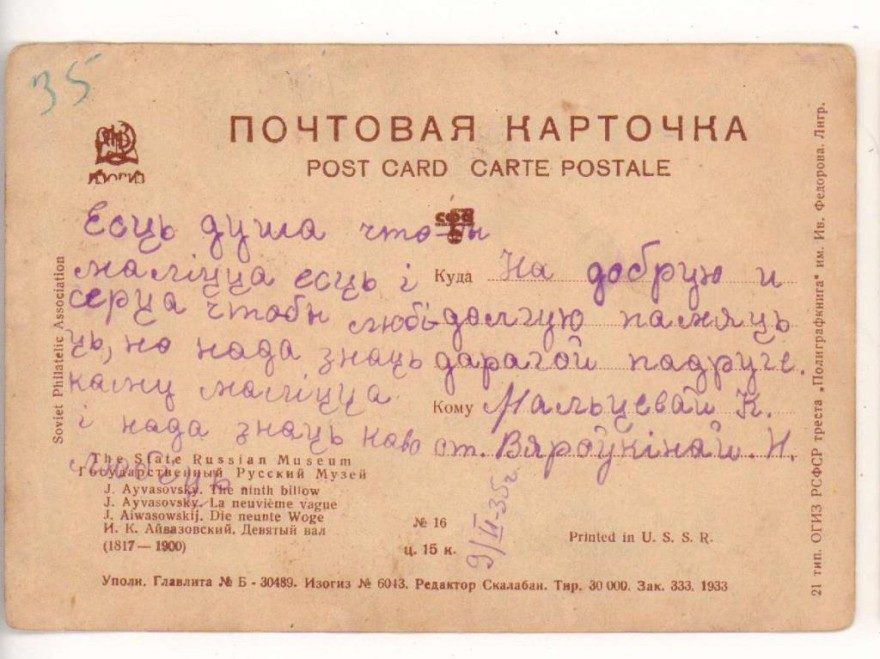 35
ПОЧТОВАЯ КАРТОЧКА
POST CARD CARTE POSTALE
ИЗОГИЗ
СФА
Есць душа что бы
маліцца есць і
серца чтобы любі-
ць, но нада знаць
каму маліцца
і нада знаць каво
любіць.
Куда На добрую и
долгую памяць
дарагой падруге.
Кому Мальцевай К.
от. Вяроўкінай. Н.
9/II-35г.
Soviet Philatelic Association
The State Russian Museum
Государственный Русский Музей
J. Ayvasovsky. The ninth billow
J. Ayvasovsky. La neuvième vague
J. Aiwasowskij. Die neunte Woge
И. К. Айвазовский. Девятый вал
(1817—1900)
№ 16
ц. 15 к.
Printed in U. S. S. R.
Уполн. Главлита № Б - 30489. Изогиз № 6043. Редактор Скалабан. Тир. 30 000. Зак. 333. 1933
21 тип. ОГИЗ РСФСР треста „Полиграфкнига" им. Ив. Федорова. Лнгр.